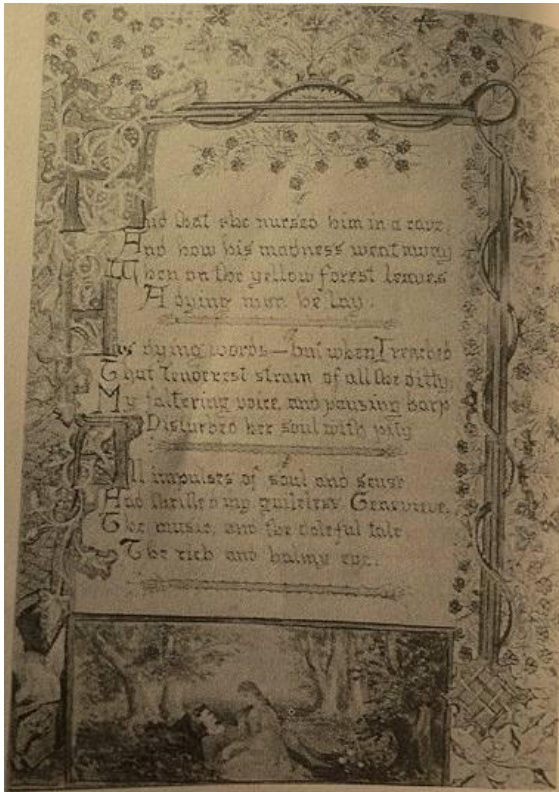 And that she nursed him in a cave,
And how his madness went away
When on the yellow forest leaves
A dying man he lay.
His dying words—but when I reached
That tenderest strain of all the ditty,
My faltering voice, and pausing harp
Disturbed her soul with pity
All impulses of soul and sense
Had thrilled my guileless Genevieve,
The music, and the doleful tale,
The rich and balmy eve.